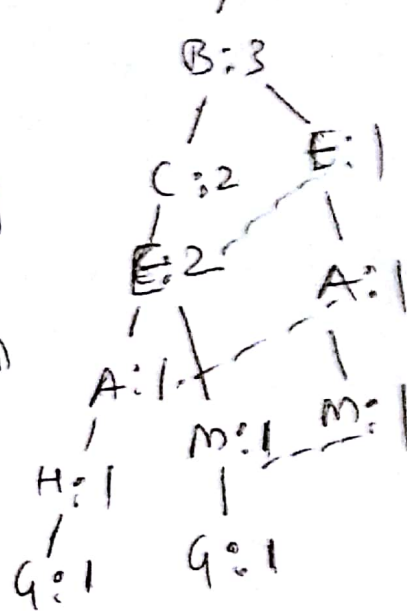 B:3
C:2 E:1
E:2 A:1
A:1 M:1 M:1
H:1 G:1
G:1